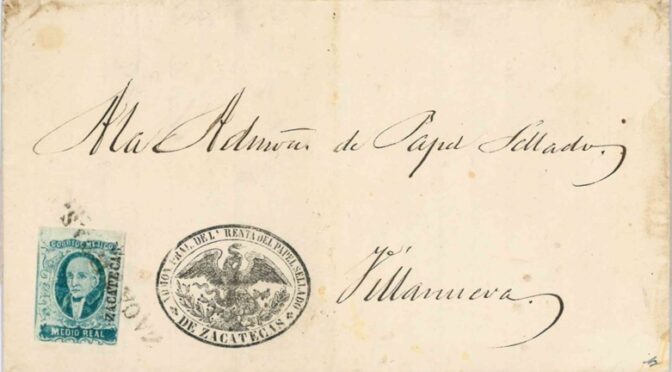 A la Admõn de Papel Sellado.
Villanueva.
CORREOS MEJICO
ZACATECAS
MEDIO REAL
ADMON PRAL. DE Lª RENTA DEL PAPEL SELLADO
DE ZACATECAS